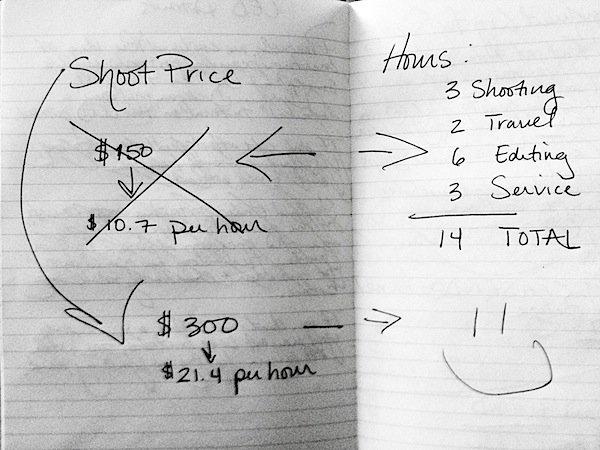 Shoot Price
$150
$10.7 per hour
$300
$21.4 per hour
Hours:
3 Shooting
2 Travel
6 Editing
3 Service
14 TOTAL